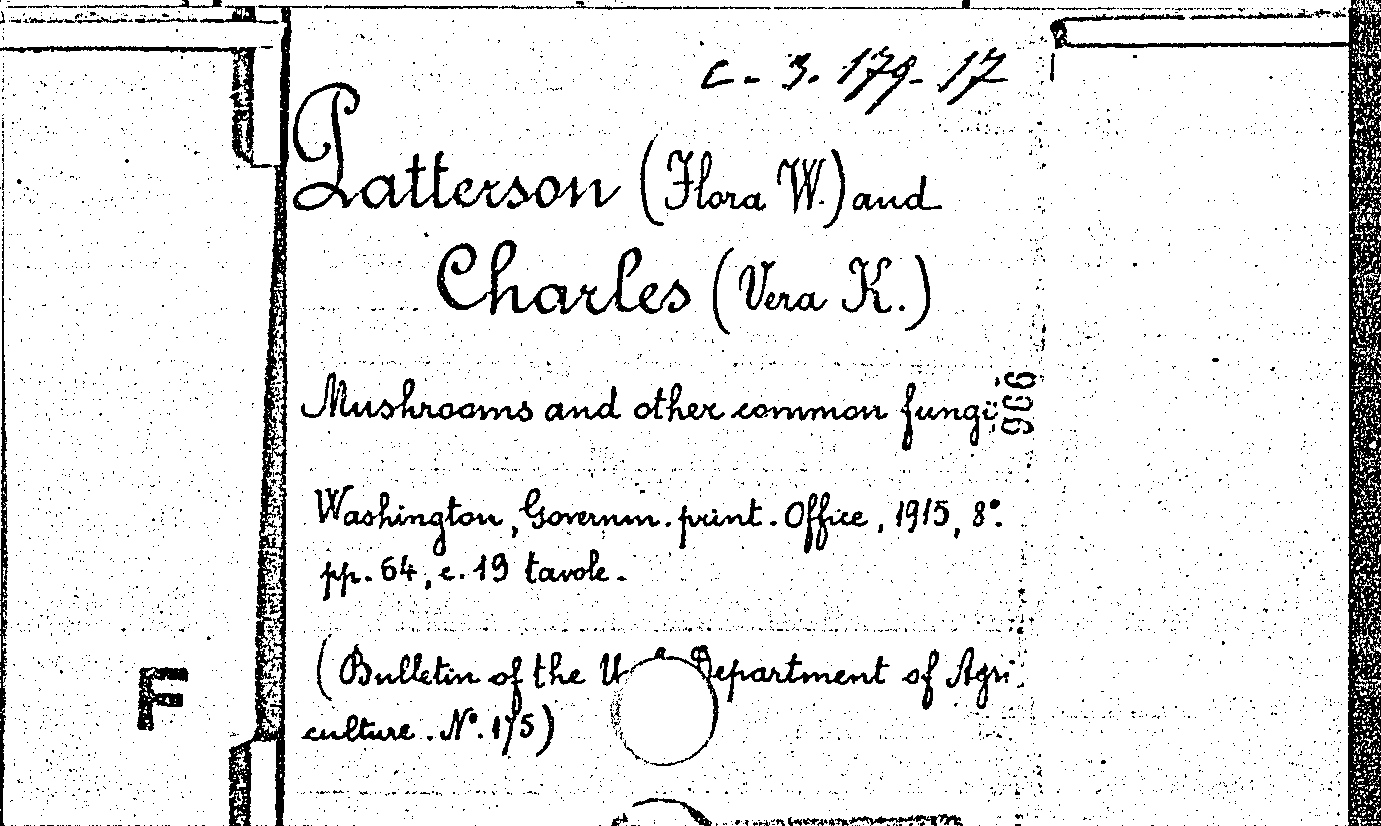 C. 3. 179. 17
Patterson (Flora W.) and
Charles (Vera K.)
Mushrooms and other common fungi
906
Washington, Governm. print. Office, 1915, 8°.
pp. 64, c. 19 tavole.
(Bulletin of the U. S. Department of Agri
culture. N°. 175)
F